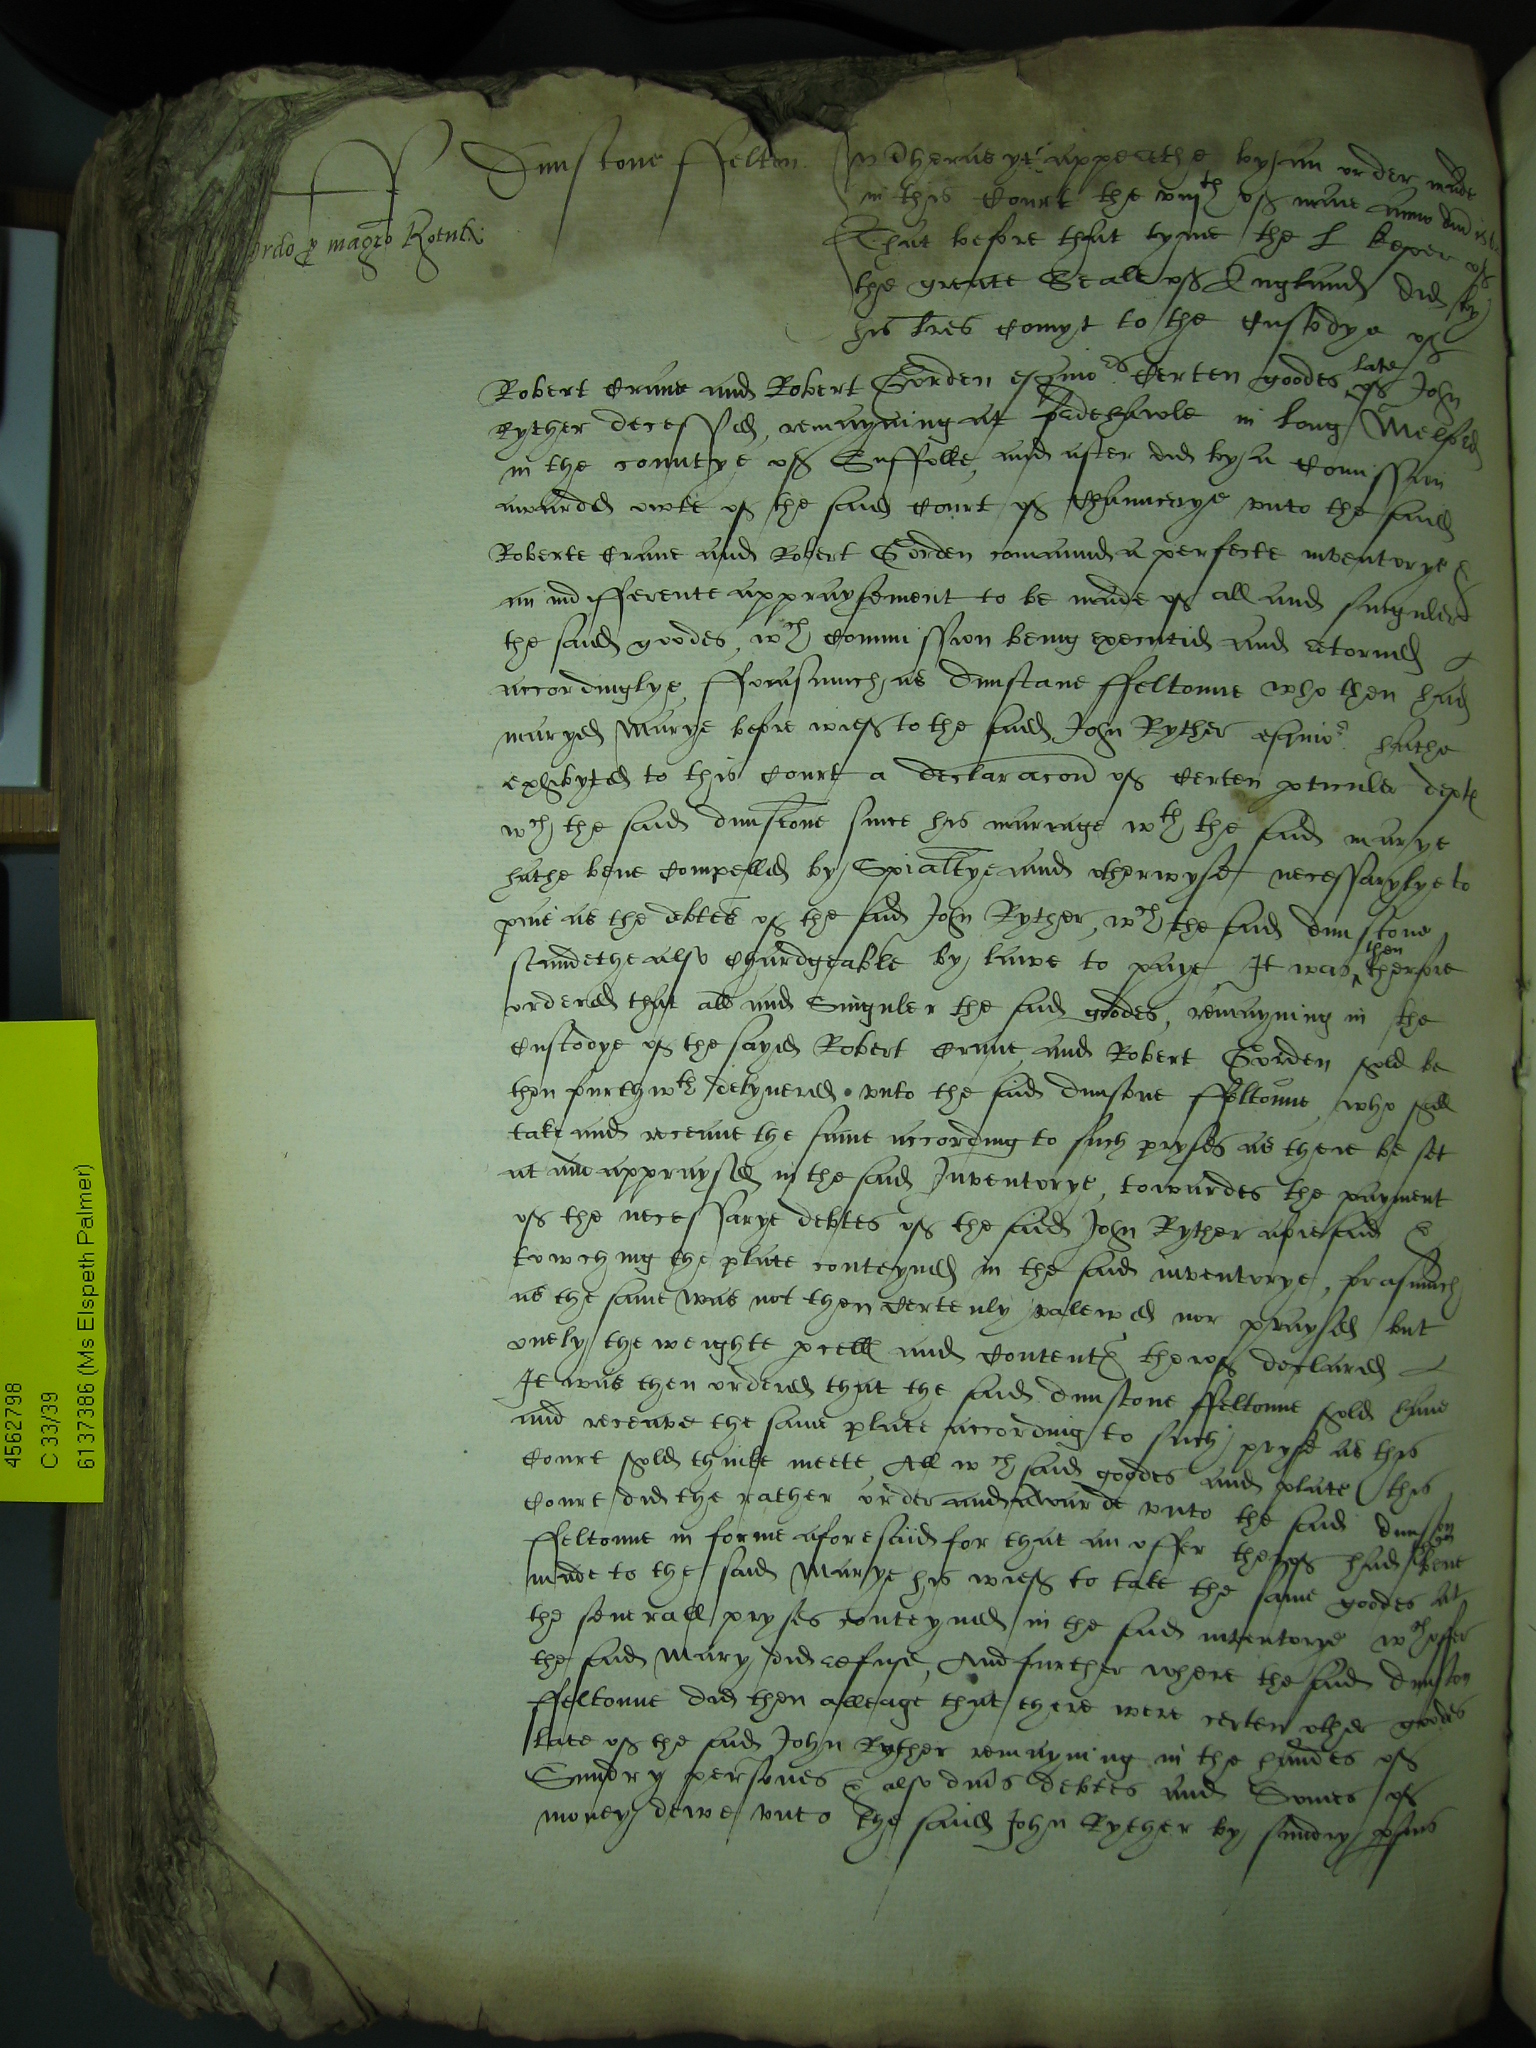 Dunstone ffelton
Ordo p magro
Wheras yt apperethe by an order made
in this Court the viijth of maie anno dni
That before that tyme the L keper of
the greate Seale of England did by
his lres Comyt to the Custodye of
Robert Crane and Robert Gorden esquiors Certen goodes late of John
Ryther decessed, remayning at in long Melford
in the countye of Suffolke, and after did by a Comission
awarded owte of the said Court of Chauncerye vnto the said
Roberte Crane and Robert Gorden comaund a perfecte inventorye &
an indifferente appraysement to be made of all and singuler
the said goodes, wch Commission being executid and retorned
accordinglye, fforasmuch as Dunstane ffeltonne who then had
maryed Marye before wief to the said John Ryther esquior hathe
exhibyted to this Court a declaracon of Certen pticuler dept
wch the said dunstone since his mariage wth the said marye
hathe bene Compelled by Spialtye and otherwyse necessarylye to
paie as the debtes of the said John Ryther, wch the said dunstone
standethe also Chardgeable by lawe to paye It was then therfore
ordered that all and Singuler the said goodes, remayning in the
Custodye of the sayed Robert Crane and Robert Gorden shold be
then furthwth delyuered vnto the said dunstone ffeltonne who shall
take and receaue the same according to such pryses as there be set
at and appraysed in the said Inventorye, towardes the payment
of the necessarye debtes of the said John Ryther aforesaid &
towching the plate conteyned in the said inventorye, forasmuch
as the same was not then Certenly valewed nor praysed but
onely the weighte pcell and Content therof declared
It was then ordered that the said dunstone ffeltonne shold haue
and receave the same plate according to such pryse as this
Court shold thinke meete, All wch said goodes and plate this
Court did the rather order and awarde vnto the said dunston
ffeltonne in forme aforesaid for that an offer therof had then bene
made to the said Marye his wief to take the same goodes at
the seuerall pryses conteyned in the said inventorye wch offer
the said Mary did refuse, And further where the said dunston
ffeltonne did then alleage that there were certen other goodes
late of the said John Ryther remayning in the handes of
Sundry persones & also diuers debtes and Somes of
money dewe vnto the said John Ryther by sundry psons
4562798
C 33/39
6137386 (Ms Elspeth Palmer)